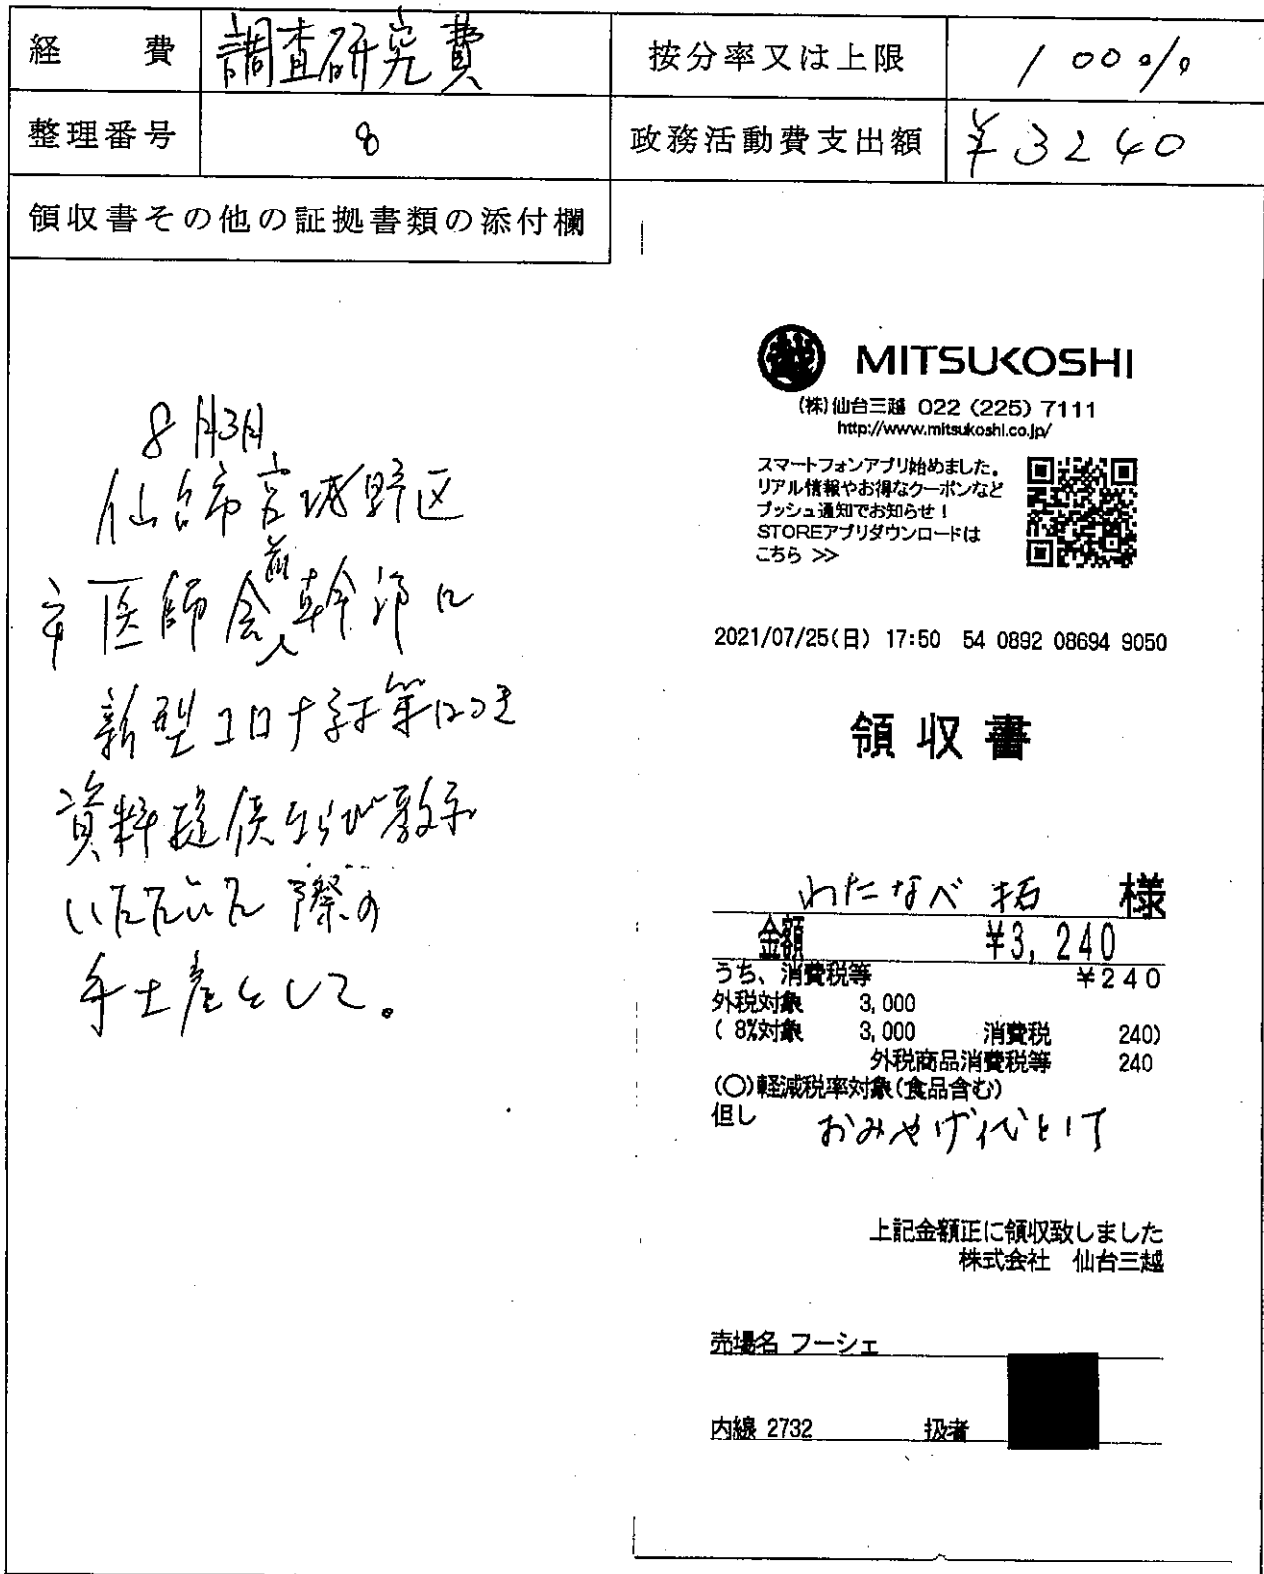 経 費 調査研究費 按分率又は上限 100%
整理番号 8 政務活動費支出額 ¥3240
領収書その他の証拠書類の添付欄
8月3日
仙台市宮城野区
市医師会前幹部に
新型コロナ対策につき
資料提供ならび教示
いただいた際の
手土産として。
越 MITSUKOSHI
(株)仙台三越 022 (225) 7111
http://www.mitsukoshi.co.jp/
スマートフォンアプリ始めました。
リアル情報やお得なクーポンなど
プッシュ通知でお知らせ!
STOREアプリダウンロードは
こちら >>
2021/07/25(日) 17:50 54 0892 08694 9050
領収書
わたなべ 拓 様
金額 ¥3,240
うち、消費税等 ¥240
外税対象 3,000
( 8%対象 3,000 消費税 240)
外税商品消費税等 240
(○)軽減税率対象(食品含む)
但し おみやげ代として
上記金額正に領収致しました
株式会社 仙台三越
売場名 フーシェ
内線 2732 扱者